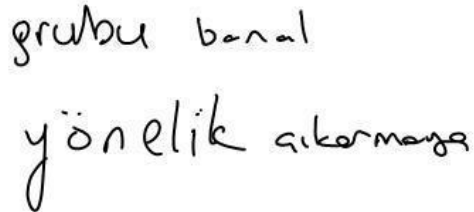 grubu banal
yönelik çıkarmaya